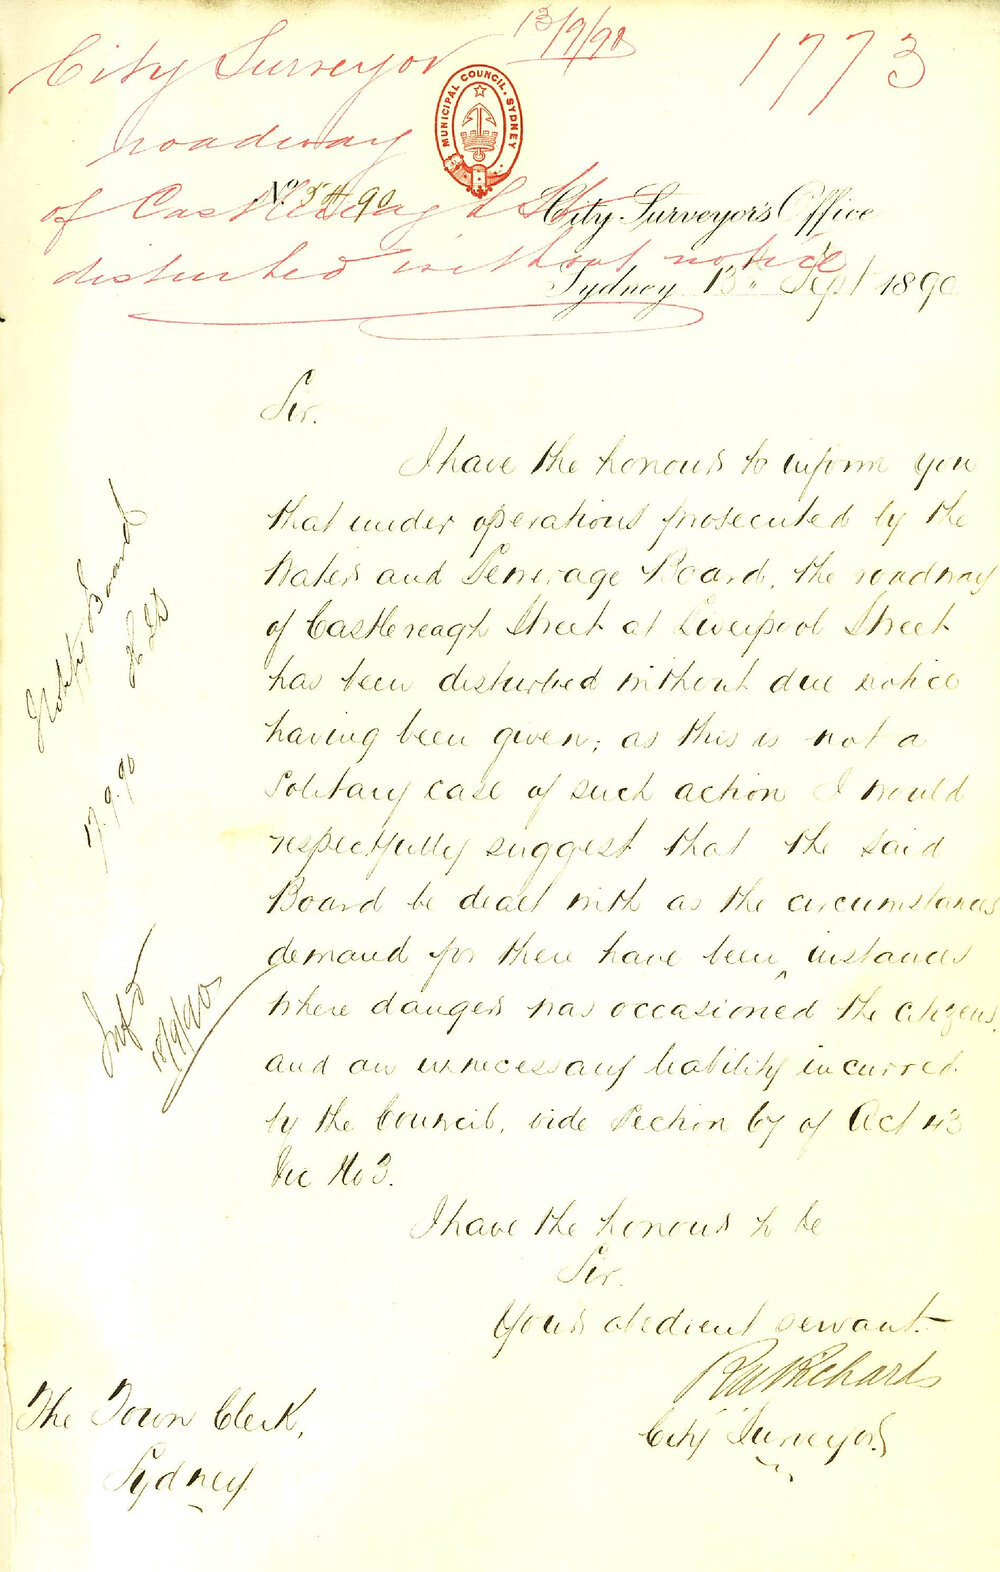 City Surveyor 13/9/90
1773
roadway
of Castlereagh St
disturbed without notice
MUNICIPAL COUNCIL. SYDNEY
No. 90
City Surveyor's Office
Sydney 13th Sept 1890
Sir.
I have the honour to inform you
that under operations prosecuted by the
Water and Sewerage Board, the roadway
of Castlereagh Street at Liverpool Street
has been disturbed without due notice
having been given; as this is not a
solitary case of such action I would
respectfully suggest that the said
Board be dealt with as the circumstances
demand for there have been instances
where danger was occasioned the citizens,
and an unnecessary liability incurred
by the Council, vide Section 67 of Act 43
Vic No 3.
I have the honour to be
Sir.
Your obedient servant.
Richards
City Surveyor
The Town Clerk,
Sydney
Notify Board
17.9.90
18/9/90